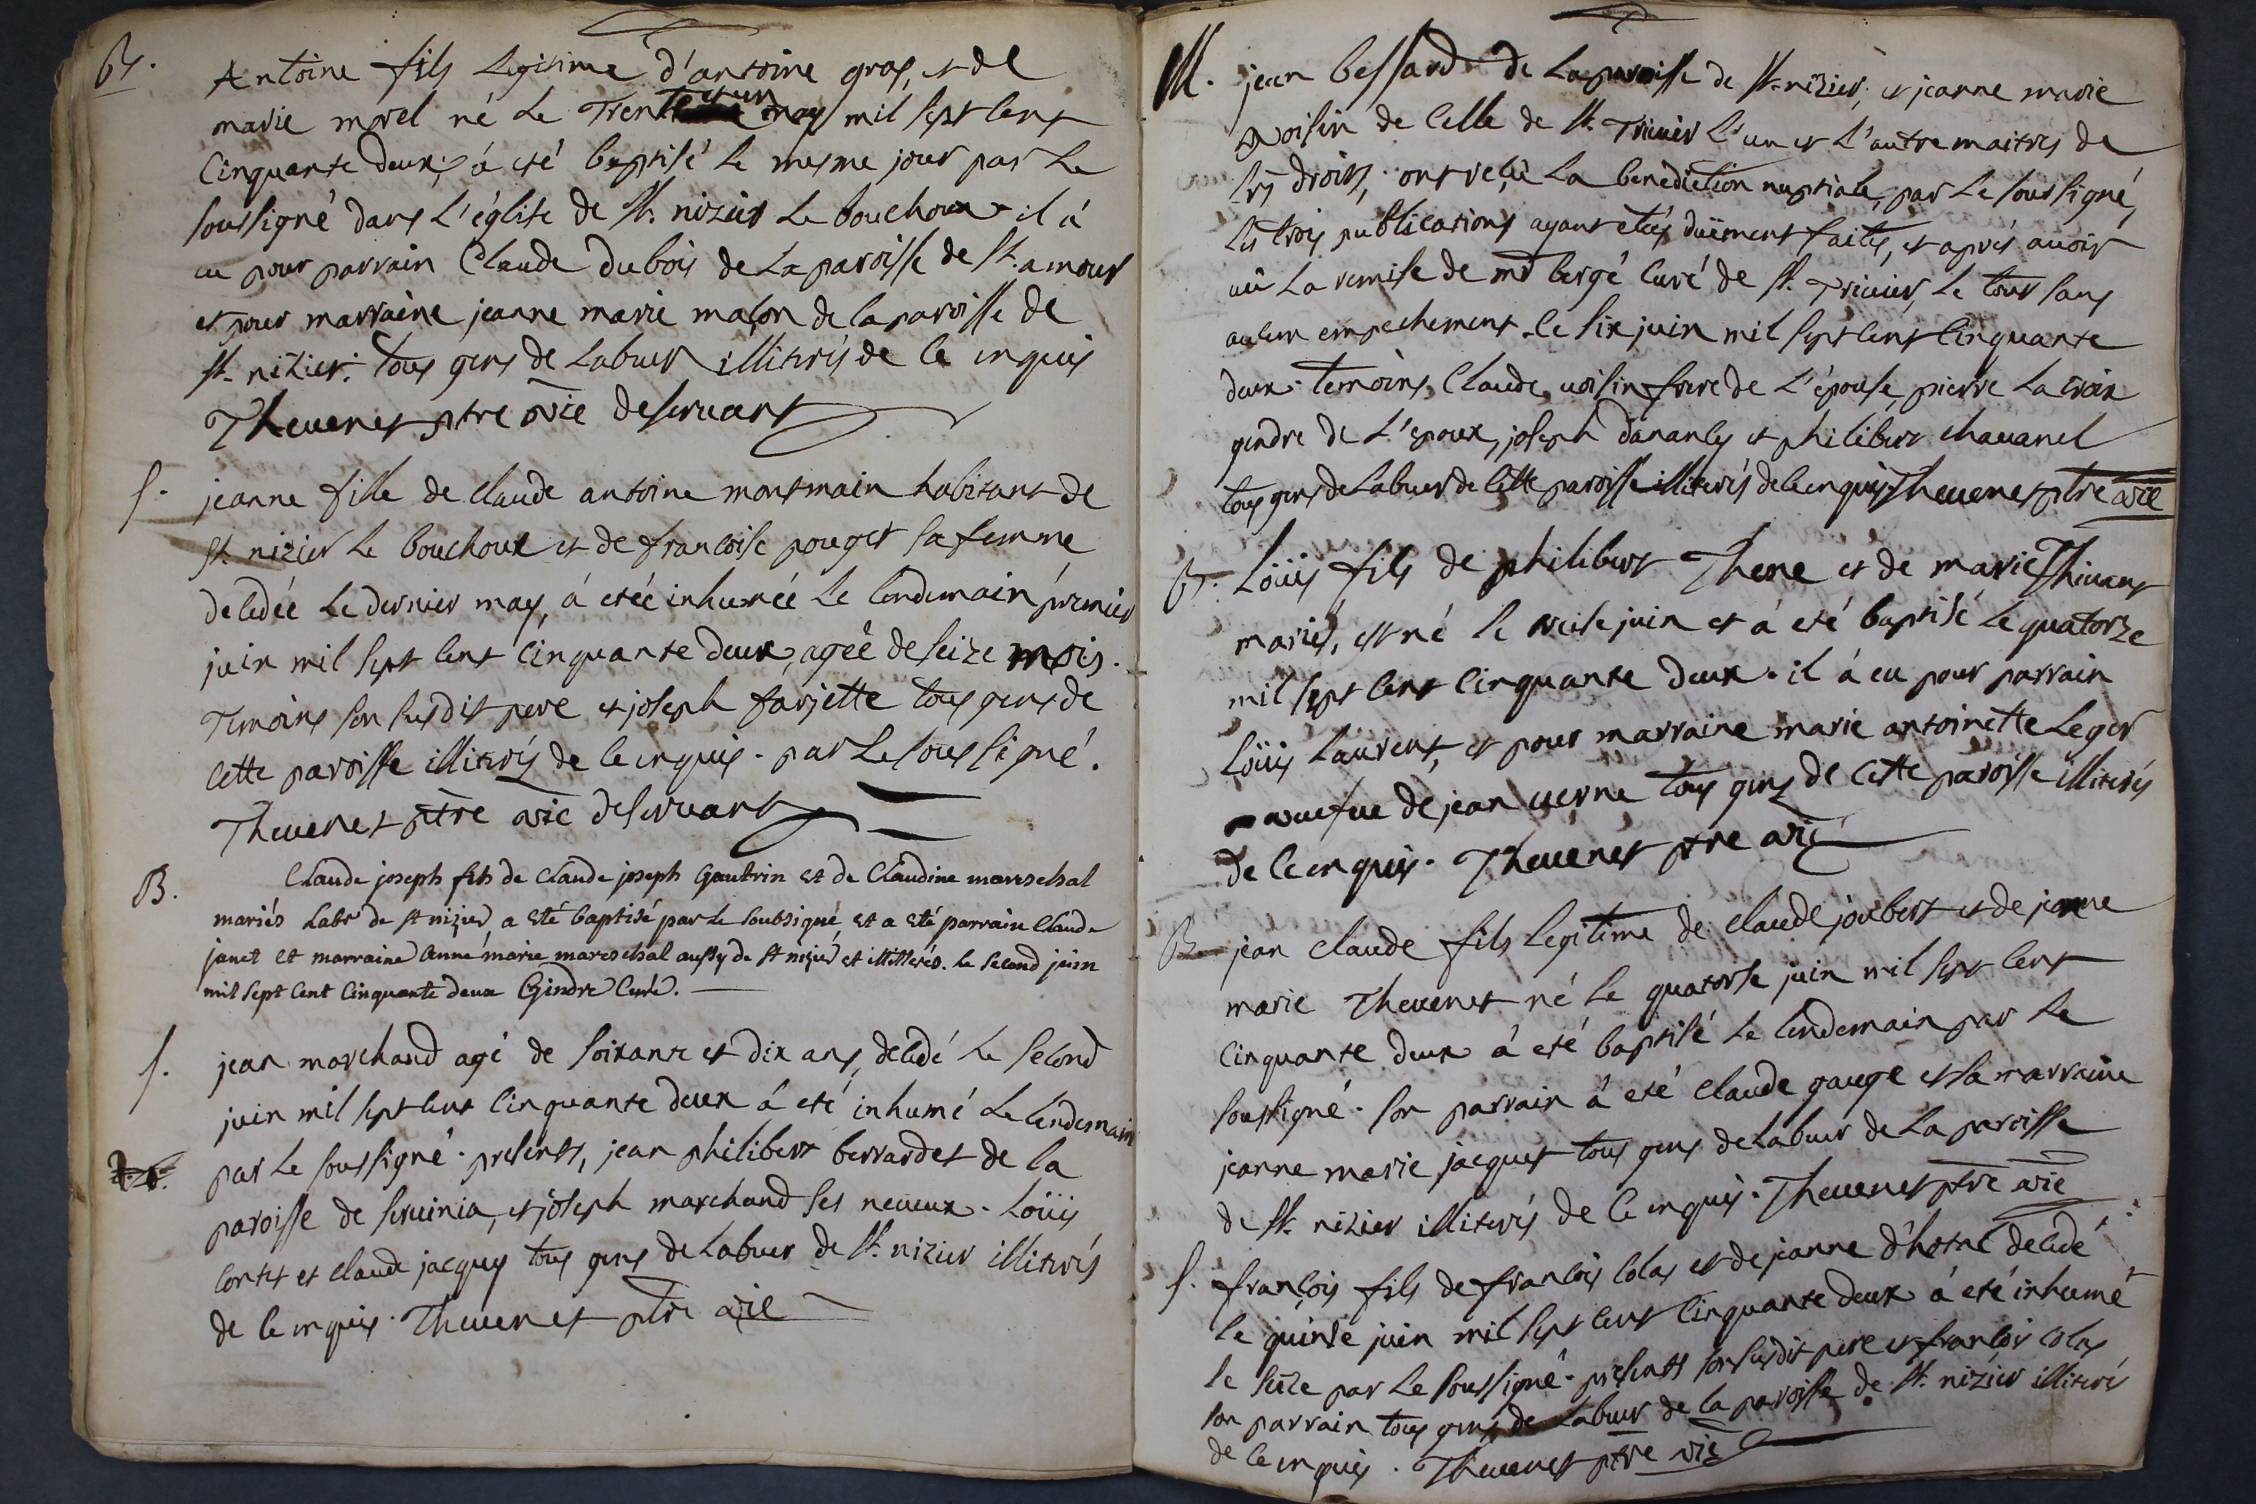 B.
Antoine fils Legitime d'antoine gras, et de
marie morel né Le Trente et un may mil sept cent
Cinquante deux, à eté baptisé le mesme jour par Le
soussigné dans L'église de St. nizier Le bouchoux il à
eu pour parrain Claude Dubois de La paroisse de St. amour
et pour marraine jeanne marie maçon de la paroisse de
st. nizier. tous gens de Labeur illiterés de ce enquis
Thevenet ptre vic desservant
S.
jeanne fille de claude antoine montmain habitant de
st. nizier Le bouchoux et de francoise pouget sa femme
decedée Le dernier may, à etée inhumée Le lendemain premier
juin mil sept cent Cinquante deux, agée de seize mois.
Temoins son susdit pere et joseph farjette tous gens de
cette paroisse illiterés de ce enquis. par Le soussigné.
Thevenet ptre vic desservant
B.
Claude joseph fils de Claude joseph Gautrin et de Claudine mareschal
mariés Labrs de st nizier, a eté baptisé par Le soubsigné, et a eté parrain Claude
janet et marraine Anne marie mareschal aussy de st nizier et illitterés. Le second juin
mil sept Cent Cinquante deux Gindre Curé.
S.
jean marchand agé de soixante et dix ans, decedé Le second
juin mil sept cent Cinquante deux à eté inhumé Le Lendemain
par Le soussigné. presents, jean philibert berrardet de la
paroisse de servinia, et joseph marchand ses neveux. Loüis
Contet et claude jacques tous gens de Labeur de St. nizier illiterés
de ce enquis. Thevenet ptre vic
M.
jean bessard de La paroisse de St. nizier, et jeanne marie
voisin de celle de St. Trivier L'un et L'autre maitres de
les droits, ont reçu La benediction nuptiale, par Le soussigné,
les trois publications ayant etés duëment faites, et aprés avoir
vû La remise de mr bergé curé de St. Trivier, Le tout sans
aucun empechement. le six juin mil sept cent Cinquante
deux. temoins, Claude voisin frere de L'épouse, pierre La croix
gendre de L'epoux, joseph dananche et philibert chavanel
tous gens de Labeur de cette paroisse illiterés de ce enquis Thevenet ptre vic
B.
Loüis fils de philibert Thene et de marie Thivent
mariés, est né le treise juin et à eté baptisé Le quatorze
mil sept cent Cinquante deux. il à eu pour parrain
Loüis Laurent, et pour marraine marie antoinette Leger
veufve de jean verne tous gens de cette paroisse illiterés
de ce enquis. Thevenet ptre vic
B
jean claude fils Legitime de claude joubert et de jeanne
marie Thevenet né Le quatorse juin mil sept cent
Cinquante deux à eté baptisé Le lendemain par Le
soussigné. son parrain à eté claude gauge et sa marraine
jeanne marie jacquet tous gens de Labeur de La paroisse
de St. nizier illiterés de ce enquis. Thevenet ptre vic
S.
françois fils de françois Colas et de jeanne d'hotal decedé
le quinse juin mil sept cent Cinquante deux à eté inhumé
le seize par Le soussigné. presents son susdit pere et françois colas
son parrain tous gens de Labeur de la paroisse de St. nizier illiterés
de ce enquis. Thevenet ptre vic